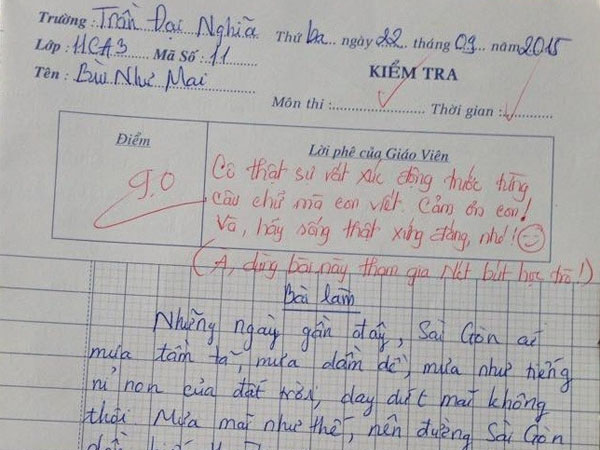 Trường : Trần Đại Nghĩa Thứ ba.. ngày 22.. tháng 09.. năm 2015
Lớp : 11CA3 Mã Số : 11
Tên : Bùi Như Mai KIỂM TRA
Môn thi : Thời gian :
Điểm Lời phê của Giáo Viên
9.0
Cô thật sự rất xúc động trước từng
câu chữ mà con viết. Cảm ơn con!
Và, hãy sống thật xứng đáng, nhé!
(À, dùng bài này tham gia Nét bút học trò!)
Bài làm
Những ngày gần đây, Sài Gòn
mưa tầm tã, mưa dầm dề, mưa như tiếng
nỉ non của đất trời, day dứt mãi không
thôi. Mưa mãi như thế, nên đường Sài Gòn